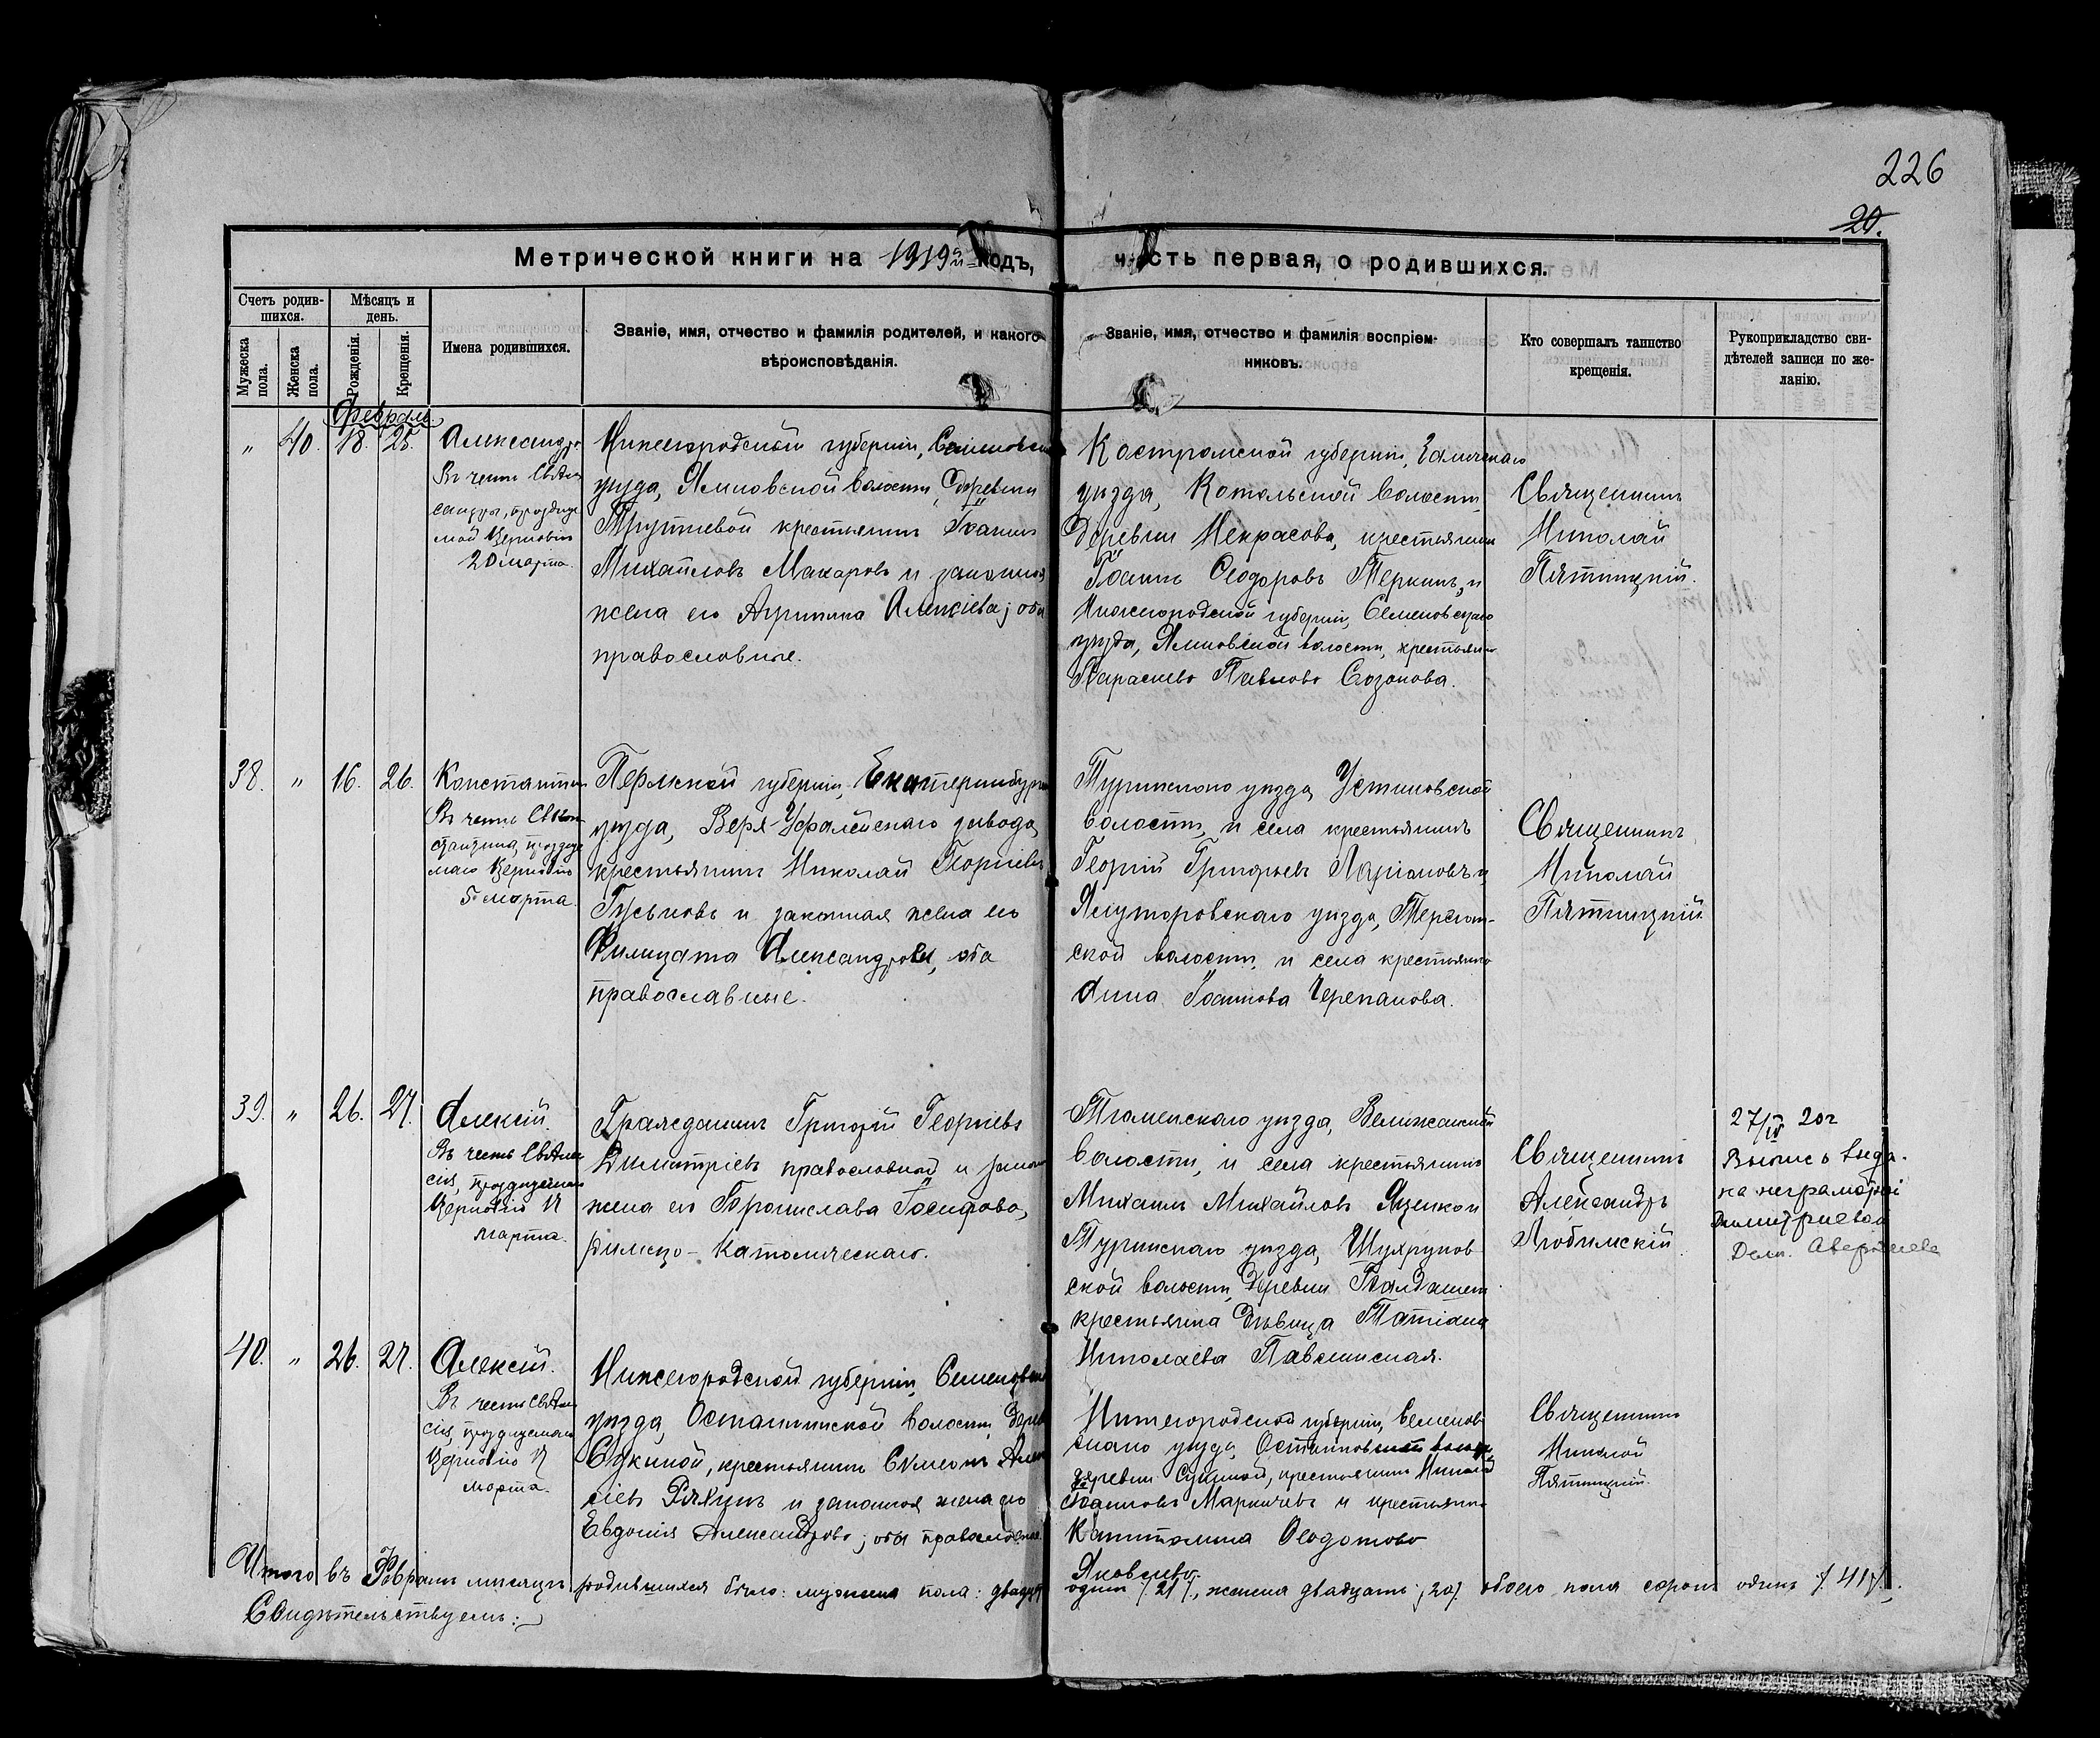 226
20.
Метрической книги на 1919й годъ,
часть первая, о родившихся.
Счетъ родив-
шихся.
Мужеска пола.
Женска пола.
Мѣсяцъ и
день.
Рожденія.
Крещенія.
Имена родившихся.
Званіе, имя, отчество и фамилія родителей, и какого
вѣроисповѣданія.
Званіе, имя, отчество и фамилія воспріем-
никовъ.
Кто совершалъ таинство
крещенія.
Рукоприкладство сви-
дѣтелей записи по же-
ланію.
Февраль
" 40. 18. 25.
Александра.
Въ честь Св. Алек
сандры, празднуе
мой Церковію
20 марта.
Нижегородской губерніи, Семеновск
уѣзда, Ямновской волости, деревни
крестьянинъ Іоаннъ
Михайловъ Макаровъ и законная
жена его Агрипина Алексіева; оба
православные.
Костромской губерніи, Галичскаго
уѣзда, Котельской волости,
деревни Некрасова, крестьянинъ
Іоаннъ Ѳеодоровъ Теркинъ, и
Нижегородской губерніи, Семеновскаго
уѣзда, Ямновской волости, крестьянка
Параскева Павлова Созонова.
Священникъ
Николай
Пятницкій.
38. " 16. 26.
Константинъ
Въ честь Св. Кон
стантина, праздну
маго Церковію
марта.
Пермской губерніи, Екатеринбург
уѣзда, Верх-Уфалейскаго завода,
крестьянинъ Николай Георгіевъ
Гуськовъ и законная жена его
Филицата Александрова, оба
православные.
Туринскаго уѣзда, Устиновской
волости, и села крестьянинъ
Георгій Григорьевъ Ларіоновъ и
Ялуторовскаго уѣзда, Терсют-
ской волости, и села крестьянка
Анна Іоаннова Черепанова.
Священникъ
Николай
Пятницкій.
39. " 26. 27.
Алексій.
Въ честь Св. Алек
сія, празднуемаго
Церковію 17
марта.
Гражданинъ Григорій Георгіевъ
Димитріевъ православной и закон
жена его Бронислава Іосифова,
римско-католическаго.
Тюменскаго уѣзда, Велижанской
волости, и села крестьянинъ
Михаилъ Михайловъ
Туринскаго уѣзда, Шухруповской
ской волости, деревни
крестьянка дѣвица Татіана
Николаева
Священникъ
Александръ
Любимскій.
27/IV 20г
Выпись выда-
на неграмотной
Димитриевой
Дѣл.
40. " 26. 27.
Алексій.
Въ честь Св. Алек
сія, празднуемаго
Церковію 17
марта.
Нижегородской губерніи, Семеновск
уѣзда, Останкинской волости, дерев
крестьянинъ Симеонъ Алек
сіевъ и законная жена его
Евдокія Александрова; оба православные.
Нижегородской губерніи, Семенов
скаго уѣзда, волости
деревни крестьянинъ Николай
Іоанновъ и крестьянка
Капитолина Ѳеодотова
Яковлева.
Священникъ
Николай
Пятницкій.
Итого въ Февралѣ мѣсяцѣ родившихся было: мужеска пола: двадцать
одинъ /21/, женска двадцать /20/. обоего пола сорокъ одинъ /41/.
Свидѣтельствуемъ: